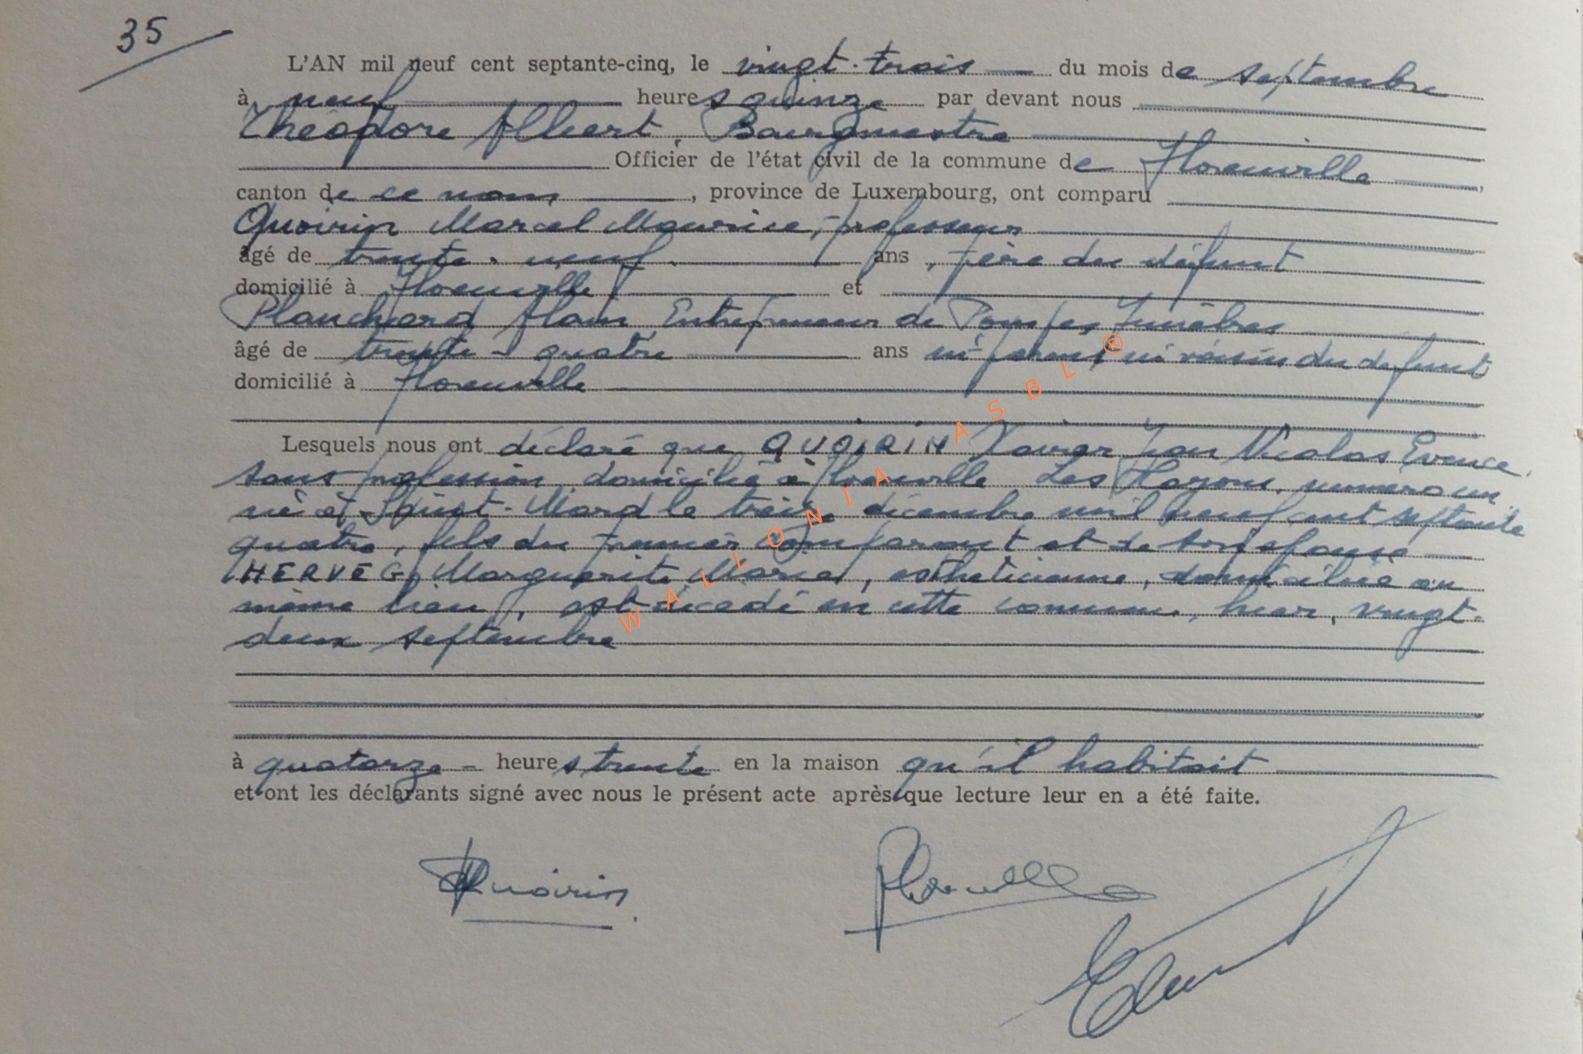 35
L'AN mil neuf cent septante-cinq, le vingt-trois du mois de septembre
à neuf heures quinze par devant nous
Théodore Albert, Bourgmestre
Officier de l'état civil de la commune de Florenville,
canton de ce nom, province de Luxembourg, ont comparu
Quoirin Marcel Maurice, professeur
âgé de trente-neuf ans, père du défunt
domicilié à Florenville et
Planchard Alain, Entrepreneur de Pompes Funèbres
âgé de trente-quatre ans ni parent ni voisin du défunt
domicilié à Florenville
Lesquels nous ont déclaré que QUOIRIN Xavier Jean Nicolas Evence,
sans profession, domicilié à Florenville, Les Hayons, numéro un,
né à Saint-Mard le treize décembre mil neuf cent septante
quatre, fils du premier comparant et de son épouse
HERVEG, Marguerite Marie, esthéticienne, domiciliée au
même lieu, est décédé en cette commune, hier, vingt-
deux septembre
à quatorze heures trente en la maison qu'il habitait
et ont les déclarants signé avec nous le présent acte après que lecture leur en a été faite.
Quoirin
WALLONIA ASBL ®